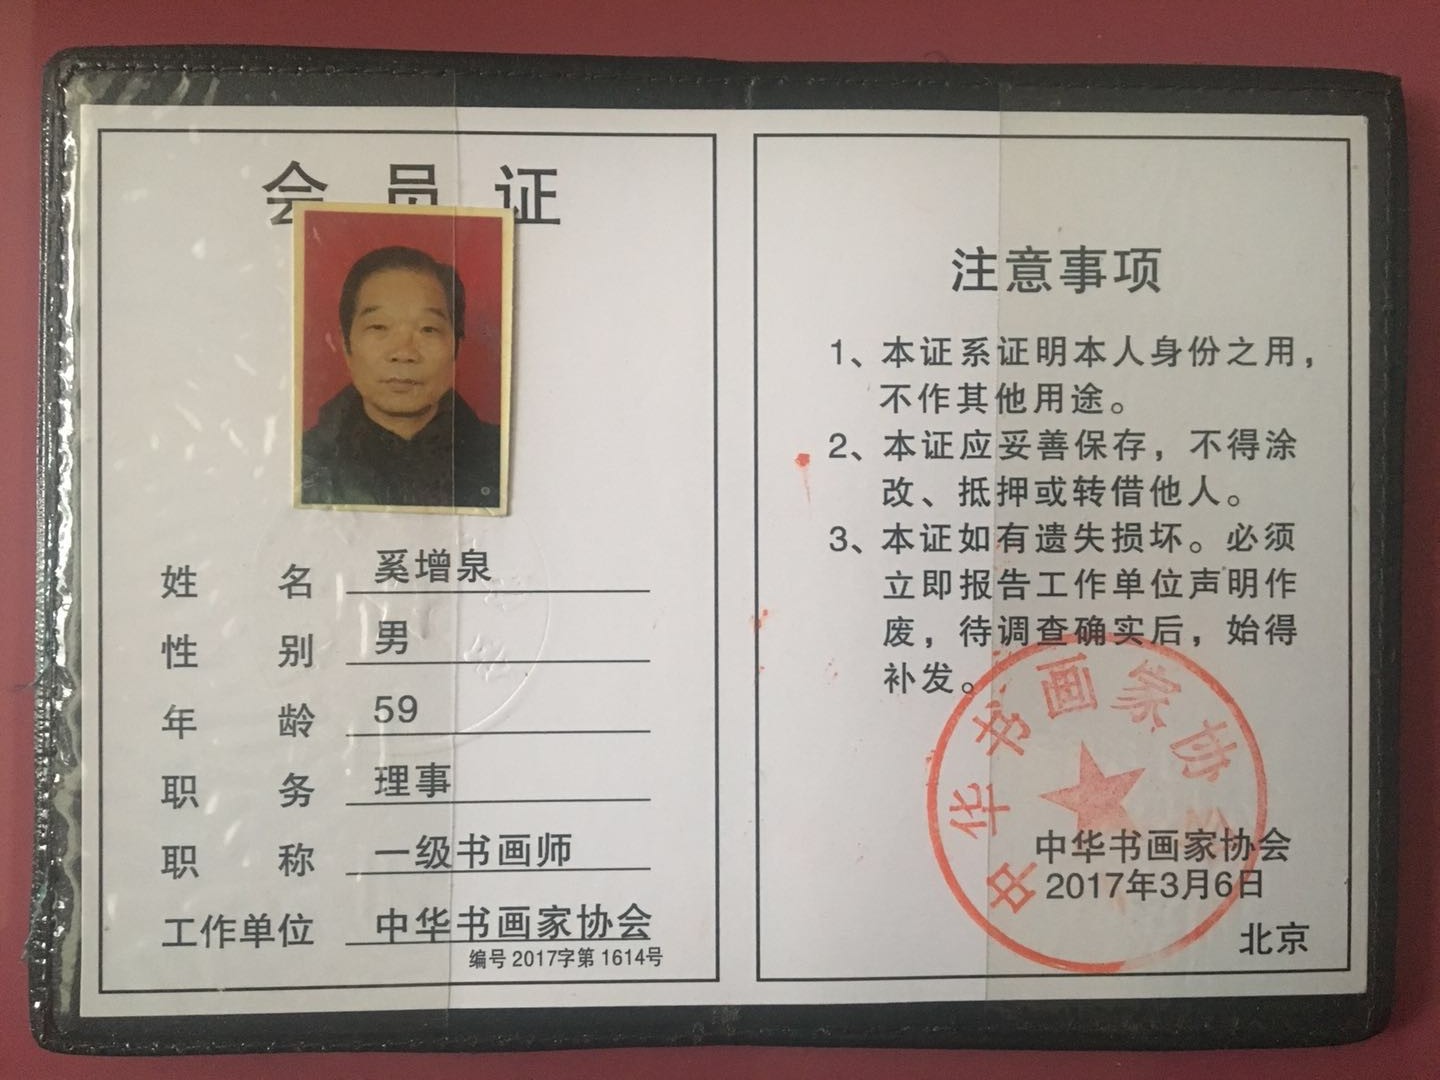 会员证
姓名 奚增泉
性别 男
年龄 59
职务 理事
职称 一级书画师
工作单位 中华书画家协会
编号 2017字第 1614号
注意事项
1、本证系证明本人身份之用，
不作其他用途。
2、本证应妥善保存，不得涂
改、抵押或转借他人。
3、本证如有遗失损坏。必须
立即报告工作单位声明作
废，待调查确实后，始得
补发。
中华书画家协会
中华书画家协会
2017年3月6日
北京